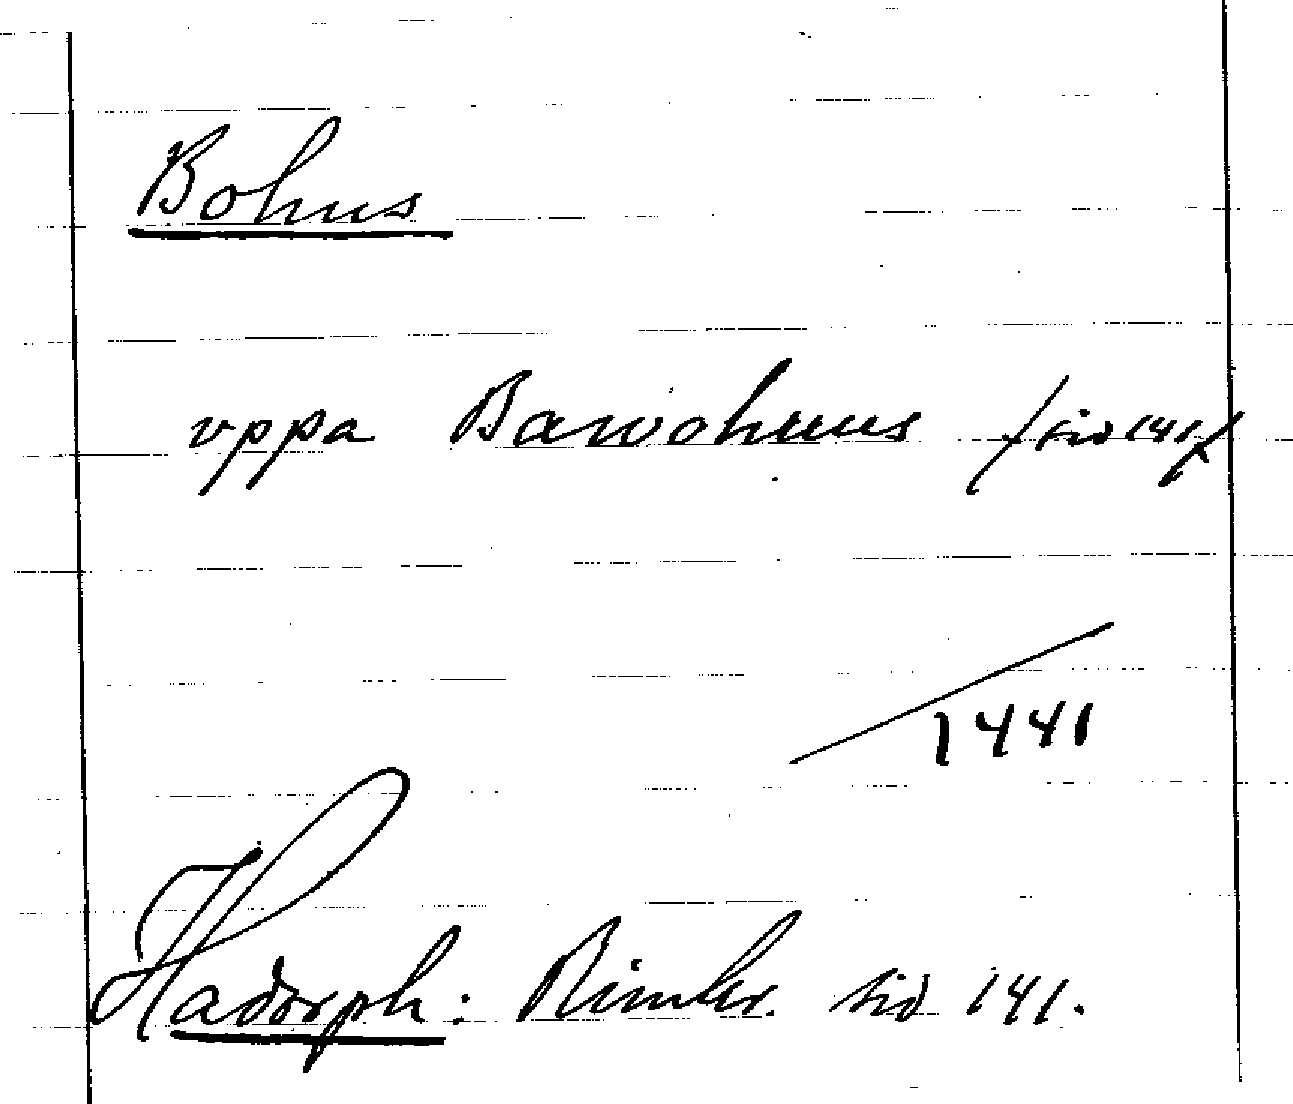 Bohus
vppa Bawohuus /sid 141/
1441
Hadorph: Rimkr. sid 141.